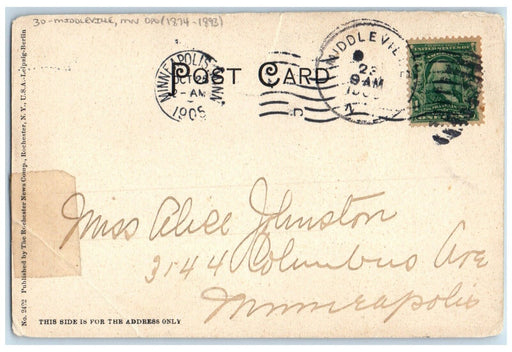 30-MIDDLEVILLE, MN DPO (1874-1893)
MINNEAPOLIS, MINN.
AM
1905
POST CARD
MIDDLEVILLE
23
9AM
ONE
Miss Alice Johnston
3144 Columbus Ave
Minneapolis
THIS SIDE IS FOR THE ADDRESS ONLY
No. 2402 Published by The Rochester News Comp., Rochester, N.Y., U.S.A.-Leipzig-Berlin